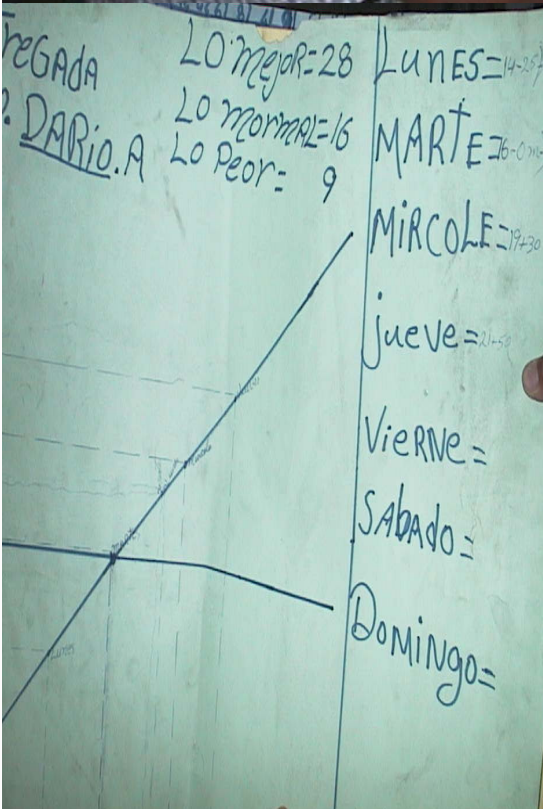 TREGADA
DARIO.A
LO MEJOR=28
LO MORMAL=16
LO PEOR= 9
LUNES=
MARTE=
MIRCOLE=19+30
jueve=
VIERNE=
SABADO=
DOMINGO=
LUNES